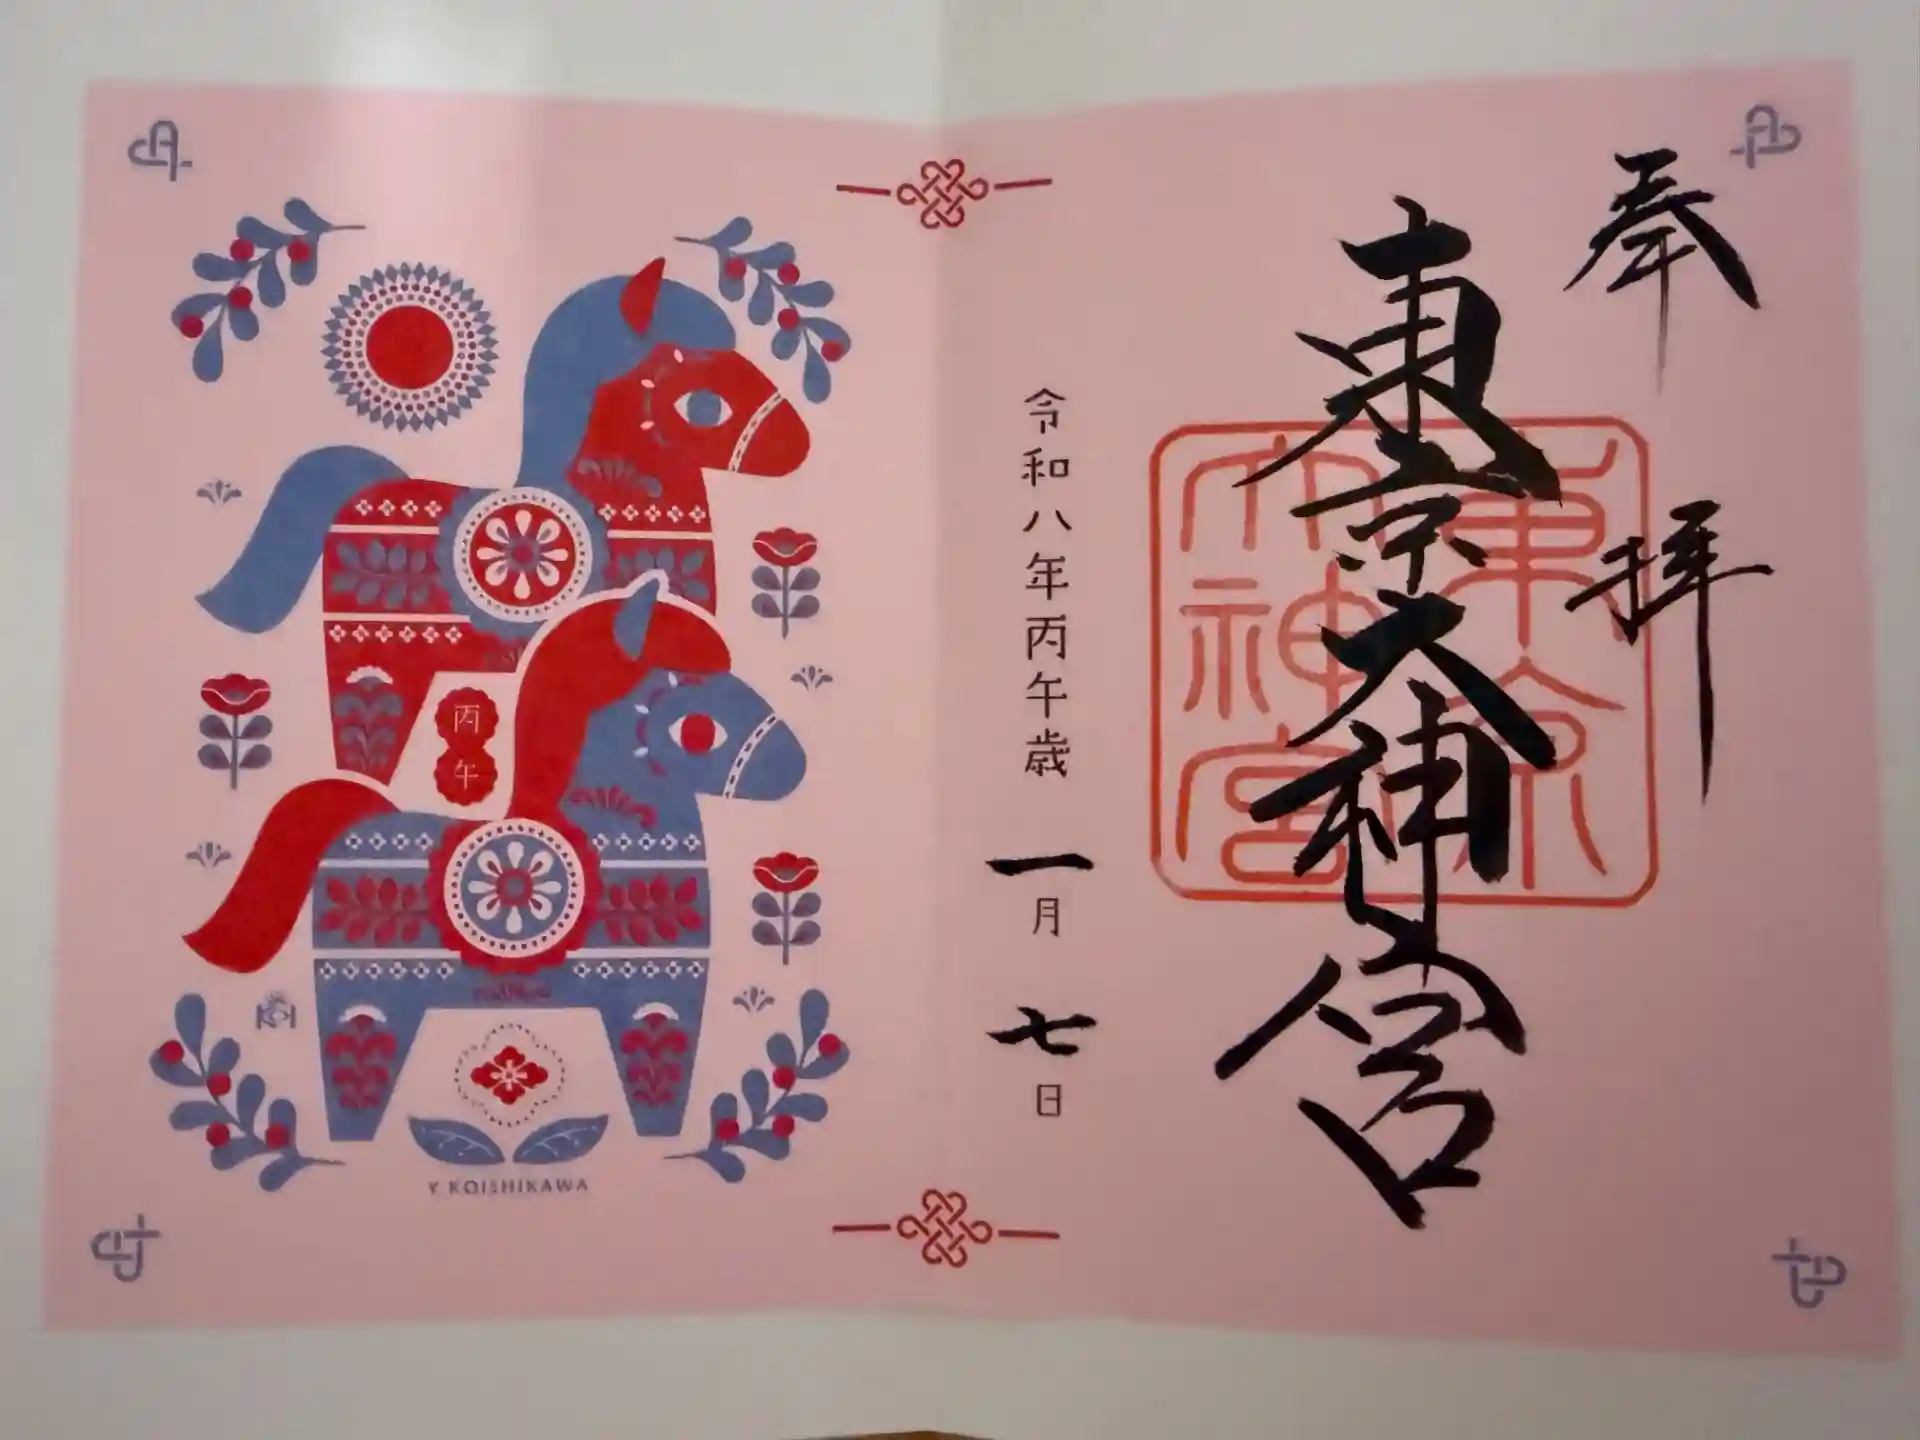 奉拝
東京大神宮
東京
大神宮
令和八年丙午歳
一月
七日
丙午
Y. KOISHIKAWA